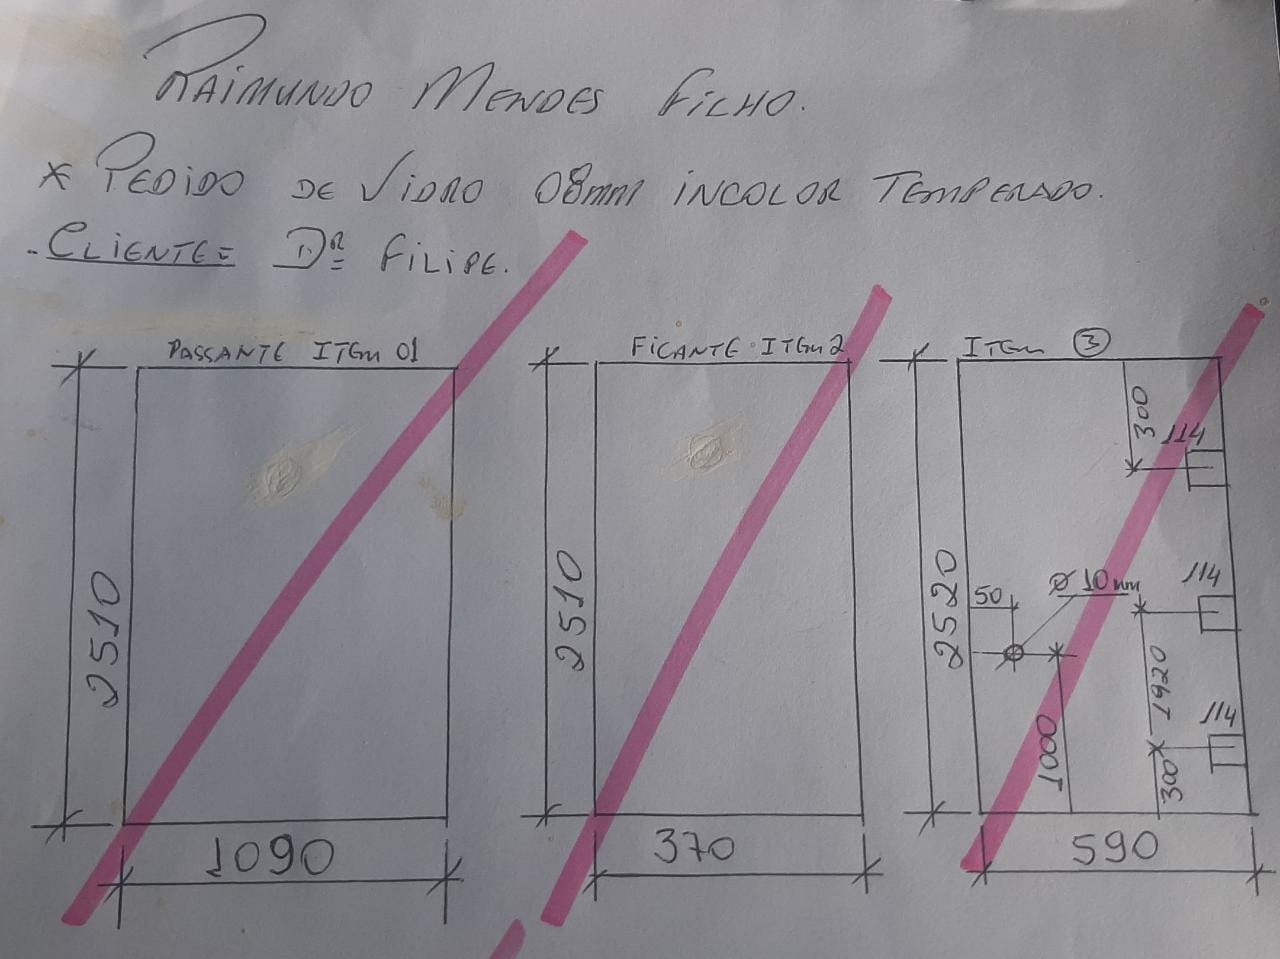 RAIMUNDO MENDES FILHO.
* PEDIDO DE VIDRO 08mm INCOLOR TEMPERADO.
. CLIENTE = Dº FILIPE.
PASSANTE ITEM 01
2510
1090
FICANTE ITEM 2
2510
370
ITEM 3
300
114
2520
50
Ø 10 mm
114
1920
1000
114
300
590